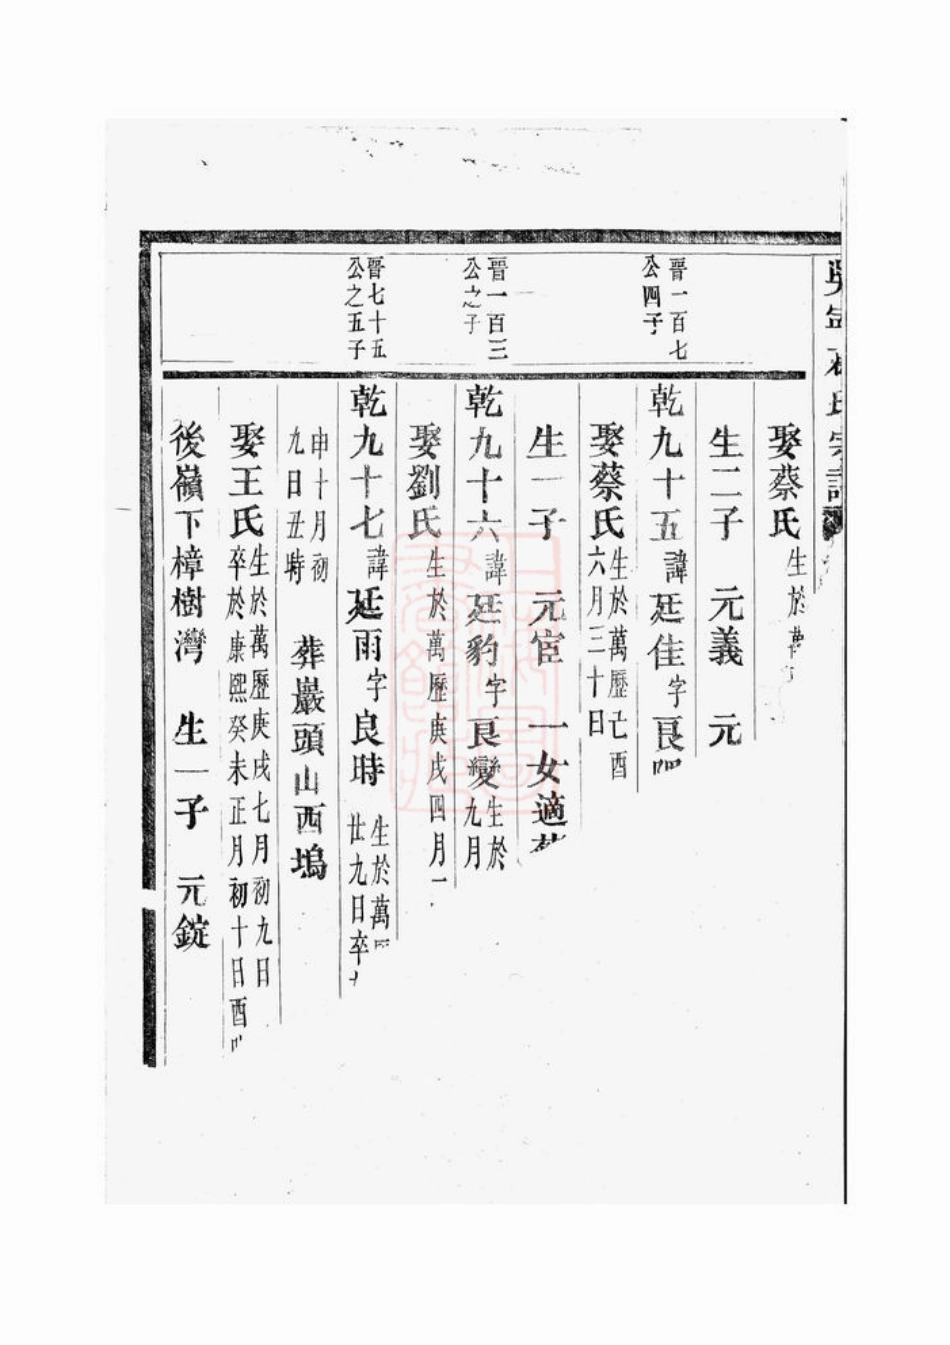 氏宗譜
娶蔡氏 生於
生二子 元義 元
晉一百七
公四子
乾九十五 諱廷佳 字良
娶蔡氏 生於萬歷己酉
六月三十日
生一子 元宦 一女適
晉一百三
公之子
乾九十六 諱廷豹 字良變 生於
九月
娶劉氏 生於萬歷庚戌四月
晉七十五
公之五子
乾九十七 諱廷雨 字良時 生於萬
廿九日卒
申十月初
九日丑時 葬巖頭山西塢
娶王氏 生於萬歷庚戌七月初九日
卒於康熙癸未正月初十日酉
後嶺下樟樹灣 生一子 元錠